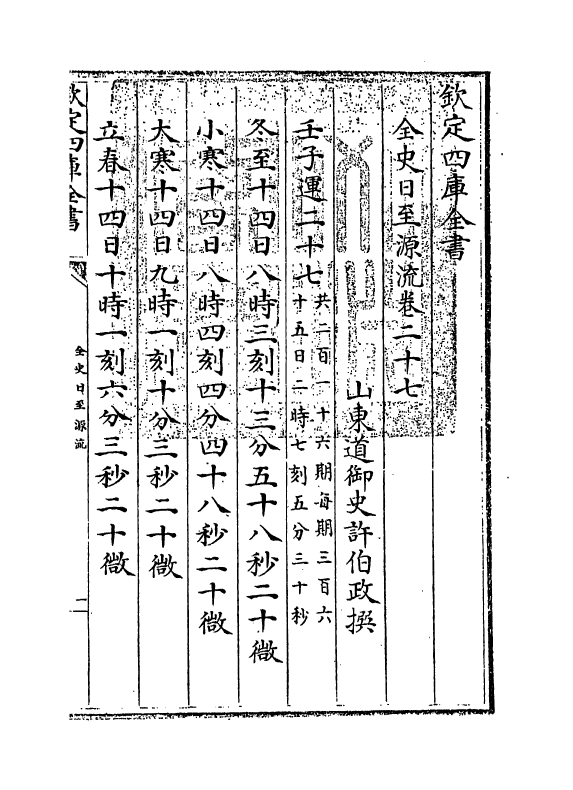 欽定四庫全書
全史日至源流卷二十七
山東道御史許伯政撰
壬子運二十七共二百一十六期每期三百六十五日二時七刻五分三十秒
冬至十四日八時三刻十三分五十八秒二十微
小寒十四日八時四刻四分四十八秒二十微
大寒十四日九時一刻十分三秒二十微
立春十四日十時一刻六分三秒二十微
欽定四庫全書
全史日至源流